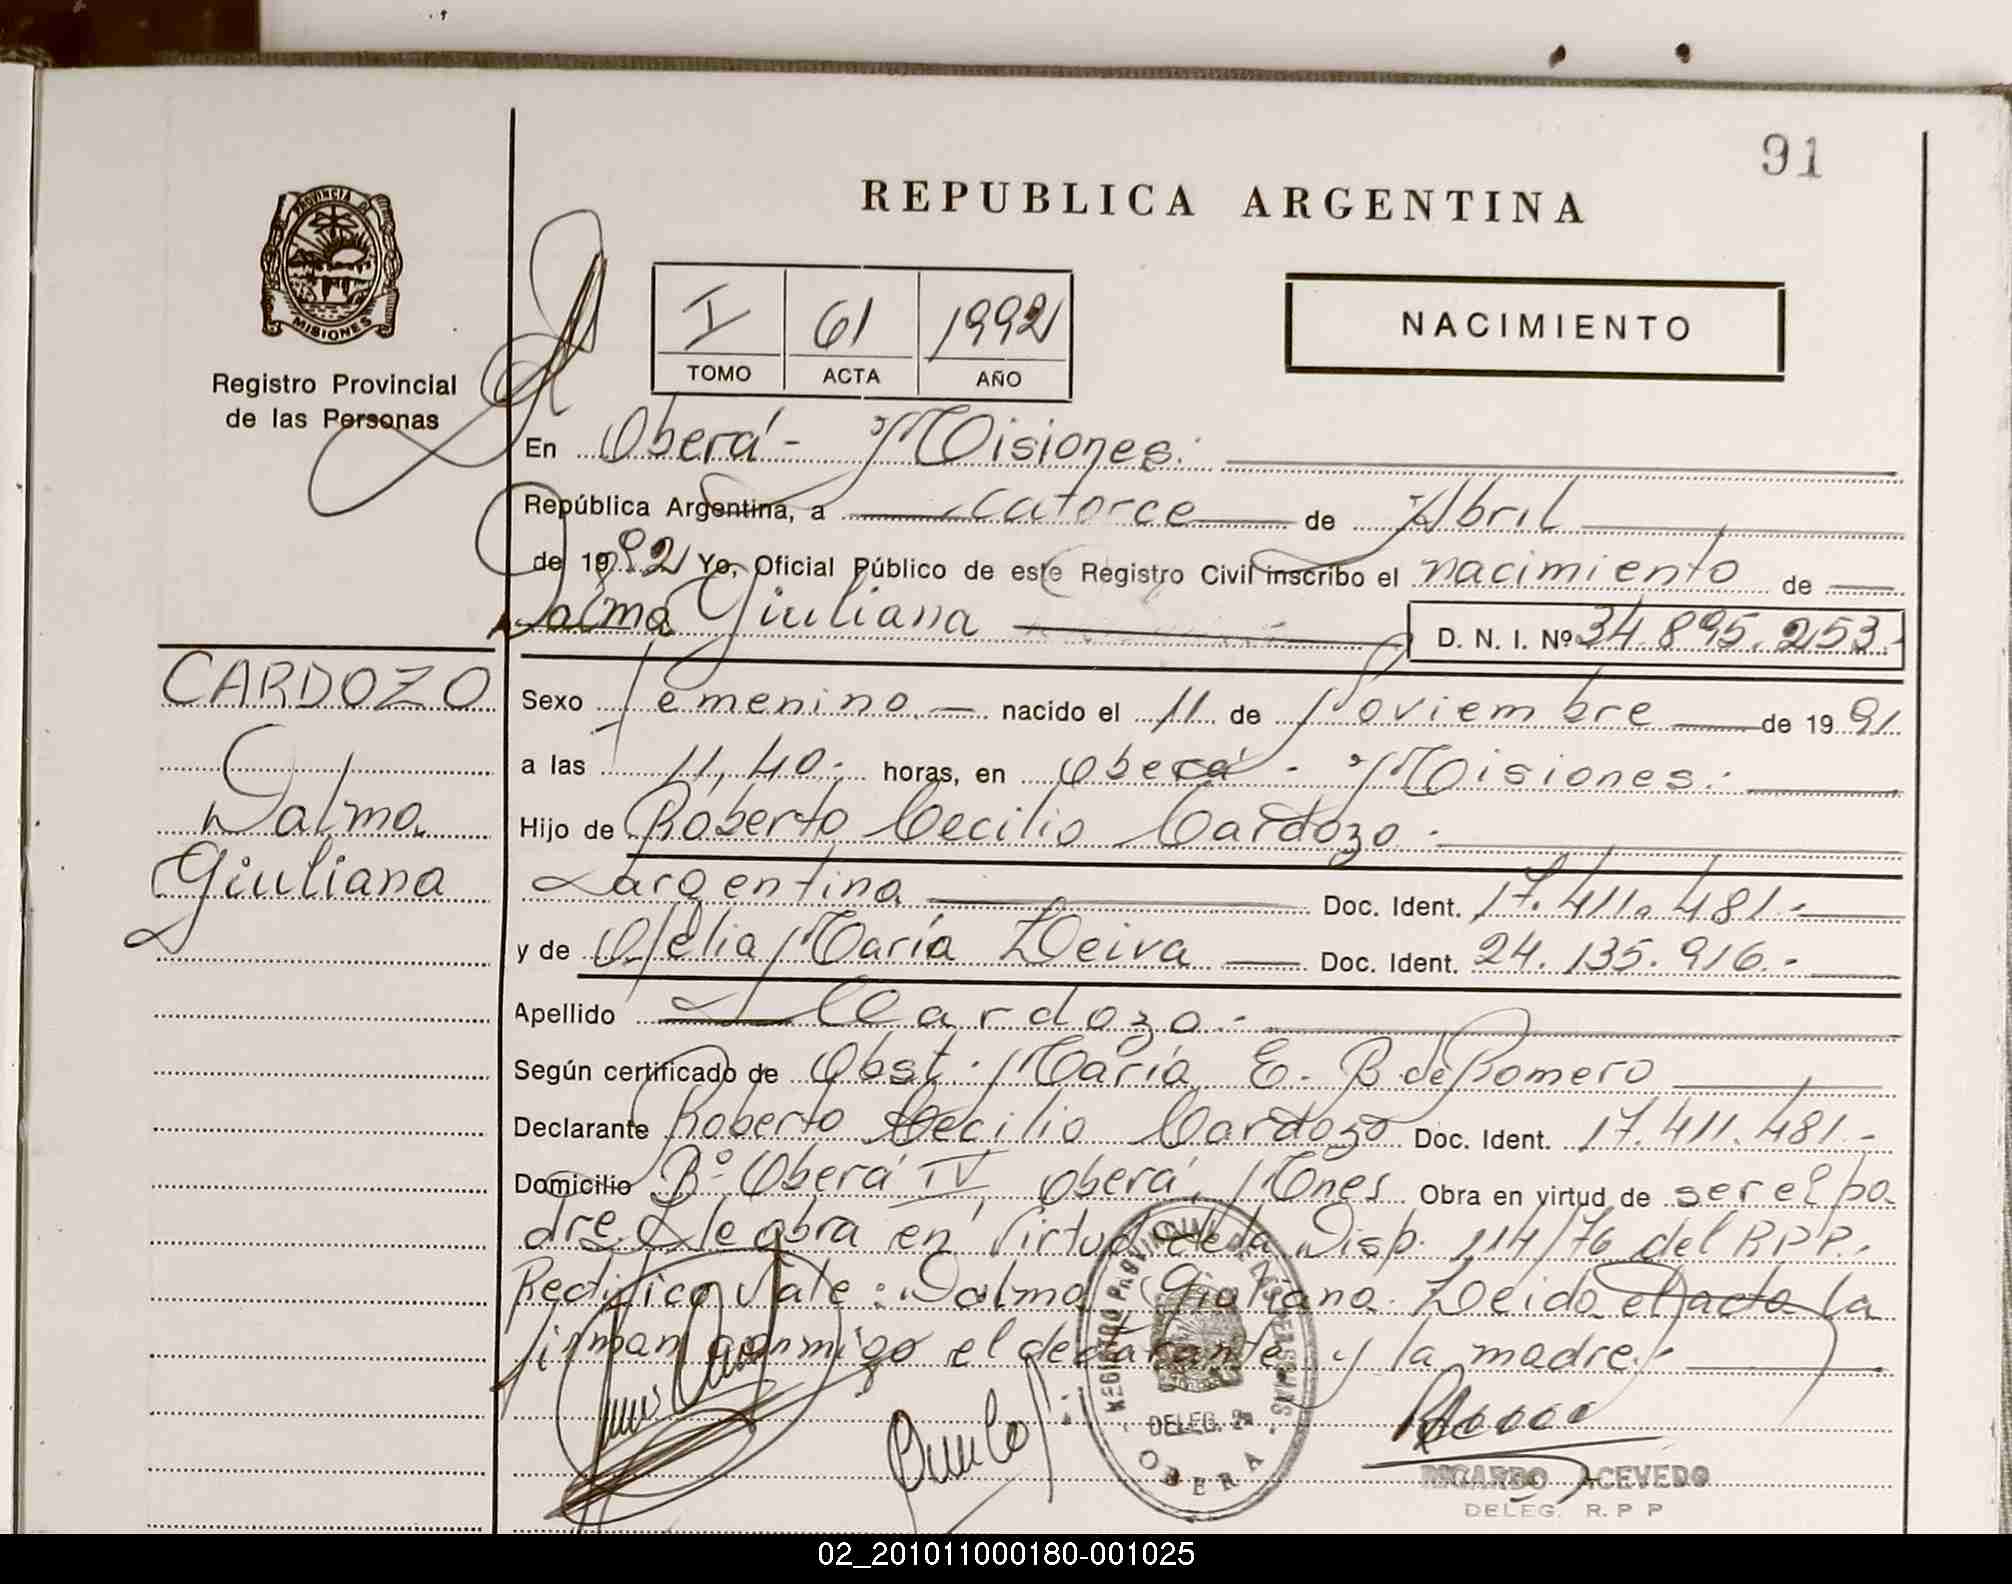 91
REPUBLICA ARGENTINA
PROVINCIA DE
MISIONES
Registro Provincial
de las Personas
I 61 1992
TOMO ACTA AÑO
NACIMIENTO
En Oberá - Misiones.
República Argentina, a catorce de Abril
de 1992 Yo, Oficial Público de este Registro Civil inscribo el nacimiento de
Dalma Giuliana D. N. I. Nº 34.895.253.-
CARDOZO
Dalma
Giuliana
Sexo femenino.- nacido el 11 de Noviembre de 1991
a las 11,40.- horas, en Oberá - Misiones.
Hijo de Roberto Cecilio Cardozo.
argentina Doc. Ident. 17.411.481.-
y de Ofelia María Leiva Doc. Ident. 24.135.916.-
Apellido Cardozo.-
Según certificado de Obst. María E. B de Romero
Declarante Roberto Cecilio Cardozo Doc. Ident. 17.411.481.-
Domicilio Bº Oberá IV, Oberá, Mnes Obra en virtud de ser el pa
dre. Se obra en Virtud de la Disp. 114/76 del R.P.P.
Rectifico Vale: Dalma Giuliana. Leida el acta la
firman conmigo el declarante y la madre.-
REGISTRO PROVINCIAL DE LAS PERSONAS
DELEG. 2a
OBERA
RICARDO ACEVEDO
DELEG. R. P P
02_201011000180-001025